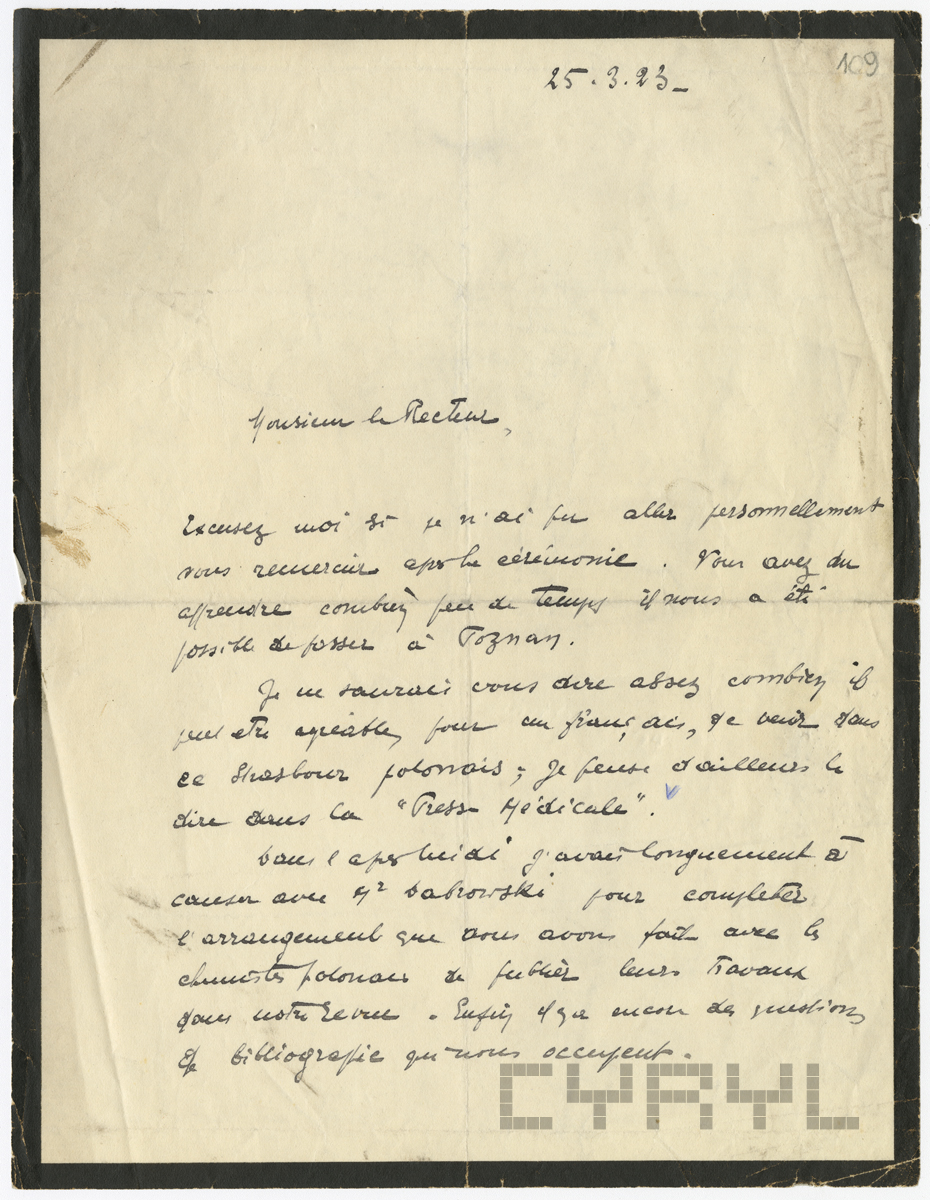 109
25.3.23_
Monsieur le Recteur,
Excusez moi si je n'ai pu aller personnellement
vous remercier après la cérémonie. Vous avez du
apprendre combien peu de temps il nous a été
possible de passer à Poznan.
Je ne saurais vous dire assez combien il
peut etre agréable, pour un français, de venir dans
ce Strasbour polonais; je pense d'ailleurs le
dire dans la "Presse Médicale".
Dans l'après midi j'avais longuement à
causer avec Mr Dabrowski pour completer
l'arrangement que nous avons fait avec les
chimistes polonais de publier leurs travaux
dans notre Revue. Enfin il y a encore des questions
de bibliografie qui nous occupent.
CYRYL